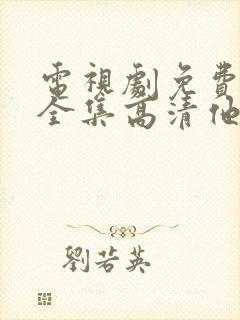 電視劇免費
全集高清他
劉若英